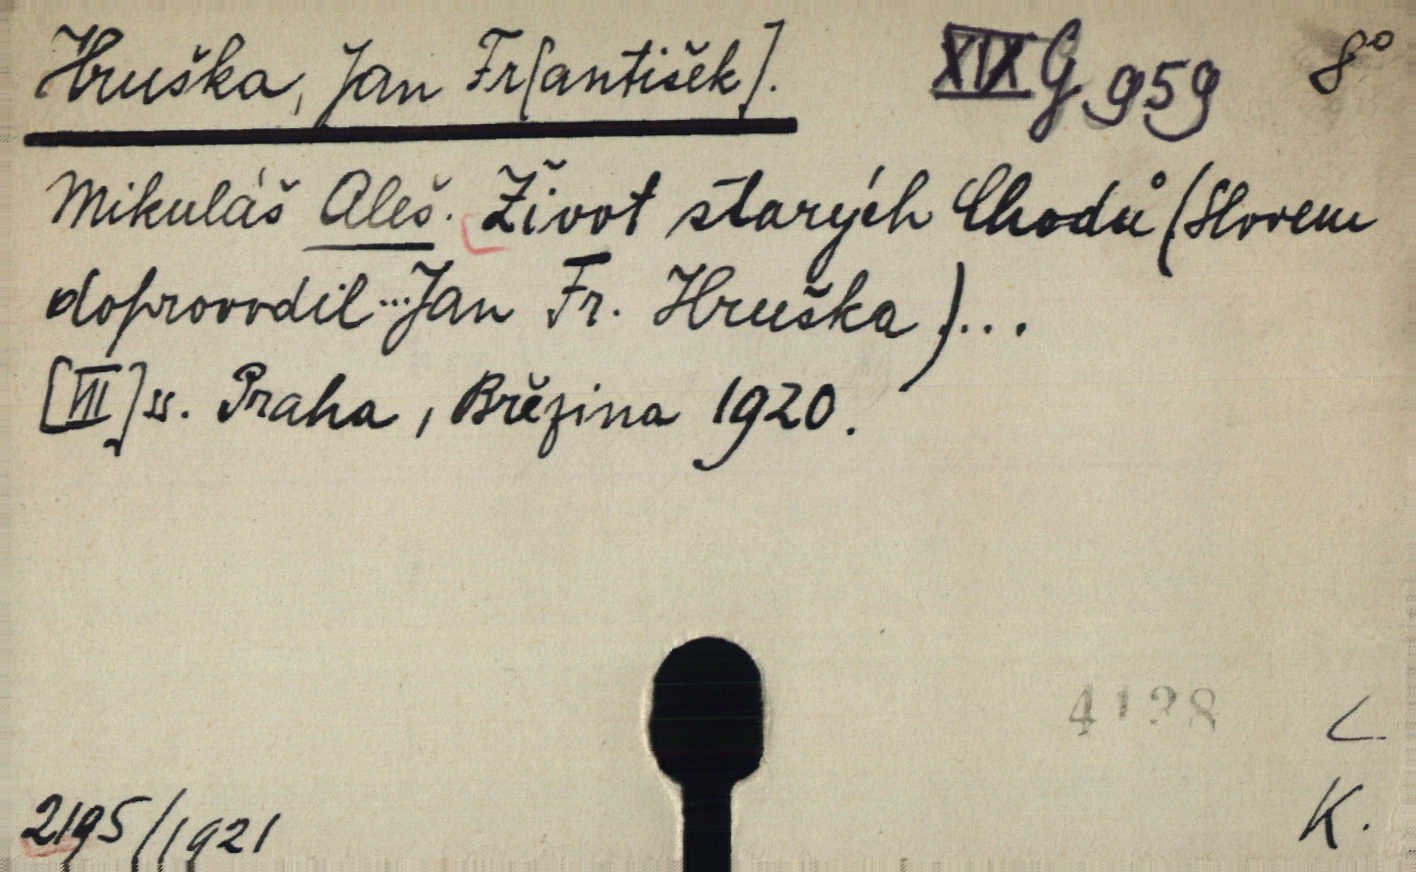 Hruška, Jan Fr[antišek]. XIX G 959 8°
Mikuláš Aleš. Život starých Chodů (Slovem
doprovodil... Jan Fr. Hruška)...
[VII] s. Praha, Březina 1920.
4128
L.
2195/1921 K.